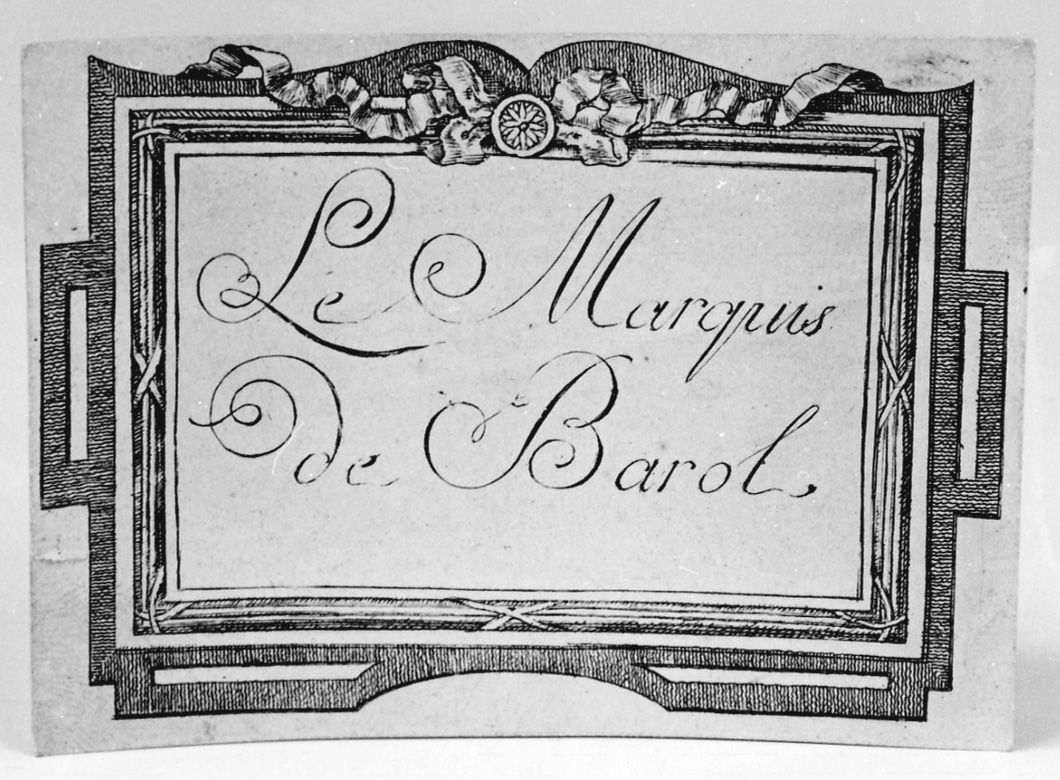 Le Marquis
de Barol